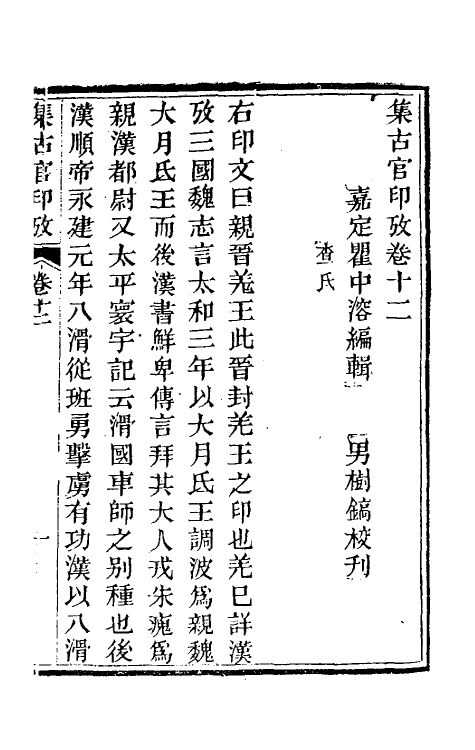 集古官印攷卷十二
嘉定瞿中溶編輯　男樹鎬校刊
查氏
右印文曰親晉羌王此晉封羌王之印也羌已詳漢
攷三國魏志言太和三年以大月氏王調波爲親魏
大月氏王而後漢書鮮卑傳言拜其大人戎朱廆爲
親漢都尉又太平寰宇記云滑國車師之别種也後
漢順帝永建元年八滑從班勇擊虜有功漢以八滑
集古官印攷　卷十二　一